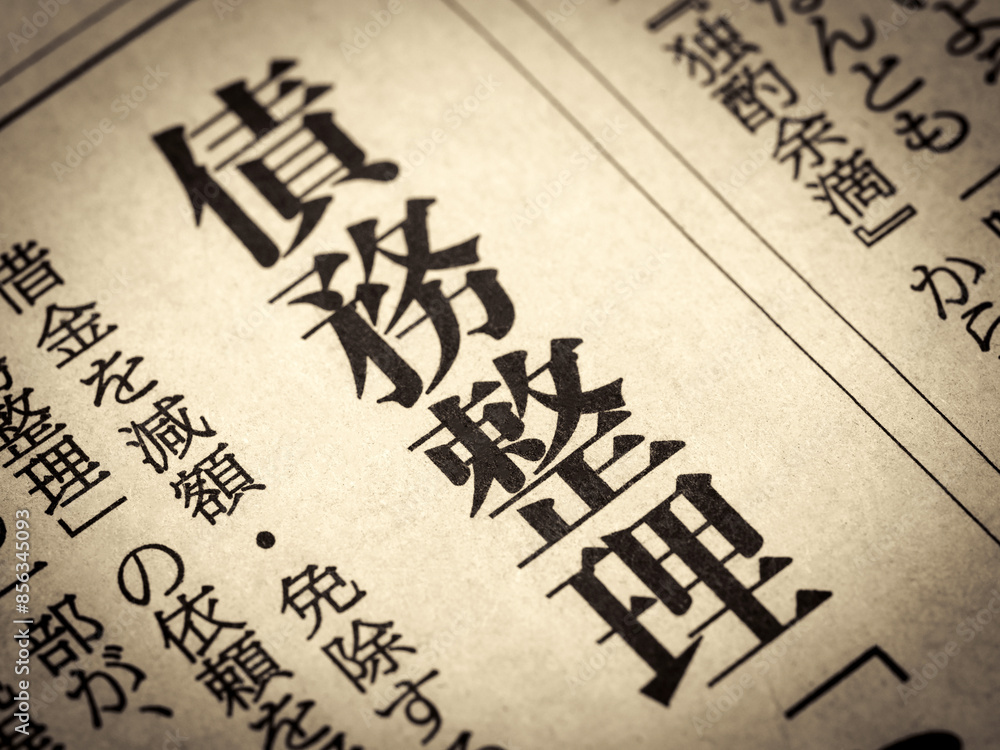 よ
なんとも
『独酌余滴』
か
債務整理
」
借金を減額・免除す
整理」の依頼を
部が、
Adobe Stock | #856345093